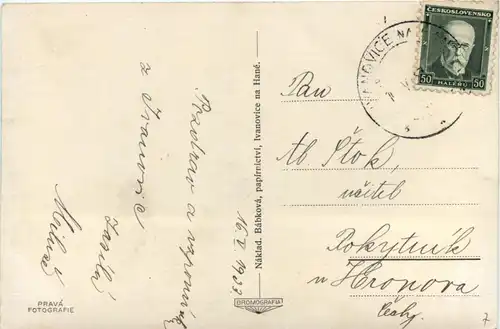 Pozdrav a vzpomínku
z Ivanovic
zasílá
16.V.1933
Náklad. Bábková, papírnictví, Ivanovice na Hané.
BROMOGRAFIA
PRAVÁ
FOTOGRAFIE
ČESKOSLOVENSKO
50 50
HALÉŘŮ
IVANOVICE NA
Pan
učitel
Rokytník
u Hronova
Čechy.
7